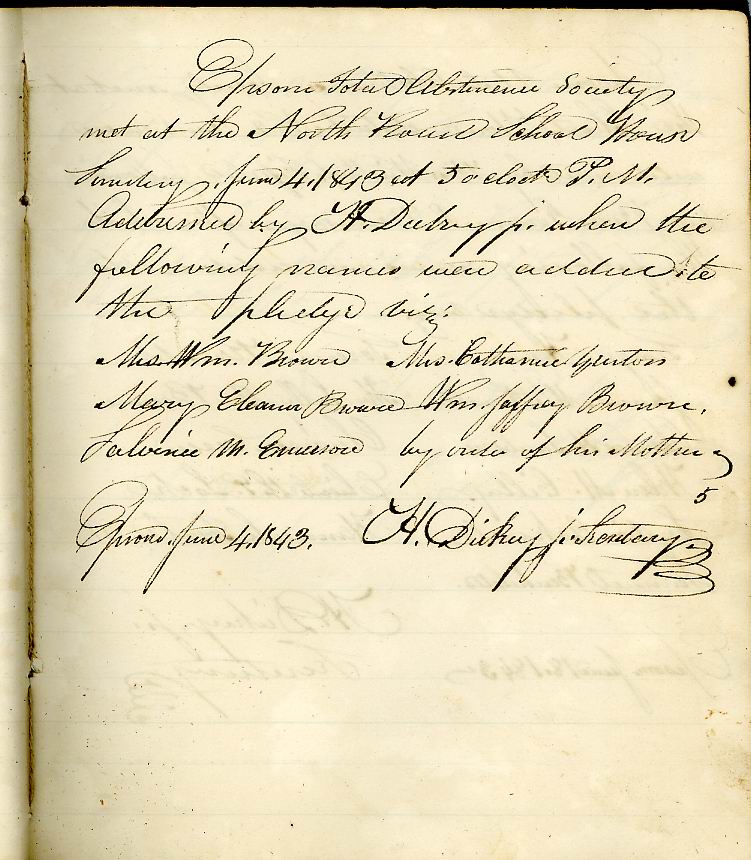 Epsom Total Abstinence Society
met at the North Road School House
Sunday, June 4, 1843 at 5 o clock P. M.
Addressed by H. Dickey jr. when the
following names were added to
the pledge viz:
Mrs. Wm. Brown Mrs. Catharine Yeaton
Mary Eleanor Brown Wm Jaffrey Brown,
M. Emerson by order of his Mother
5
Epsom. June 4, 1843. H. Dickey jr. Secretary